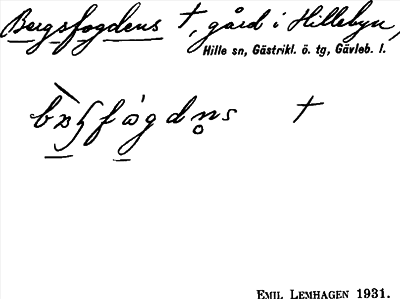 Bergsfogdens †, gård i Hillebyn,
Hille sn, Gästrikl. ö. tg, Gävleb. l.
†
EMIL LEMHAGEN 1931.